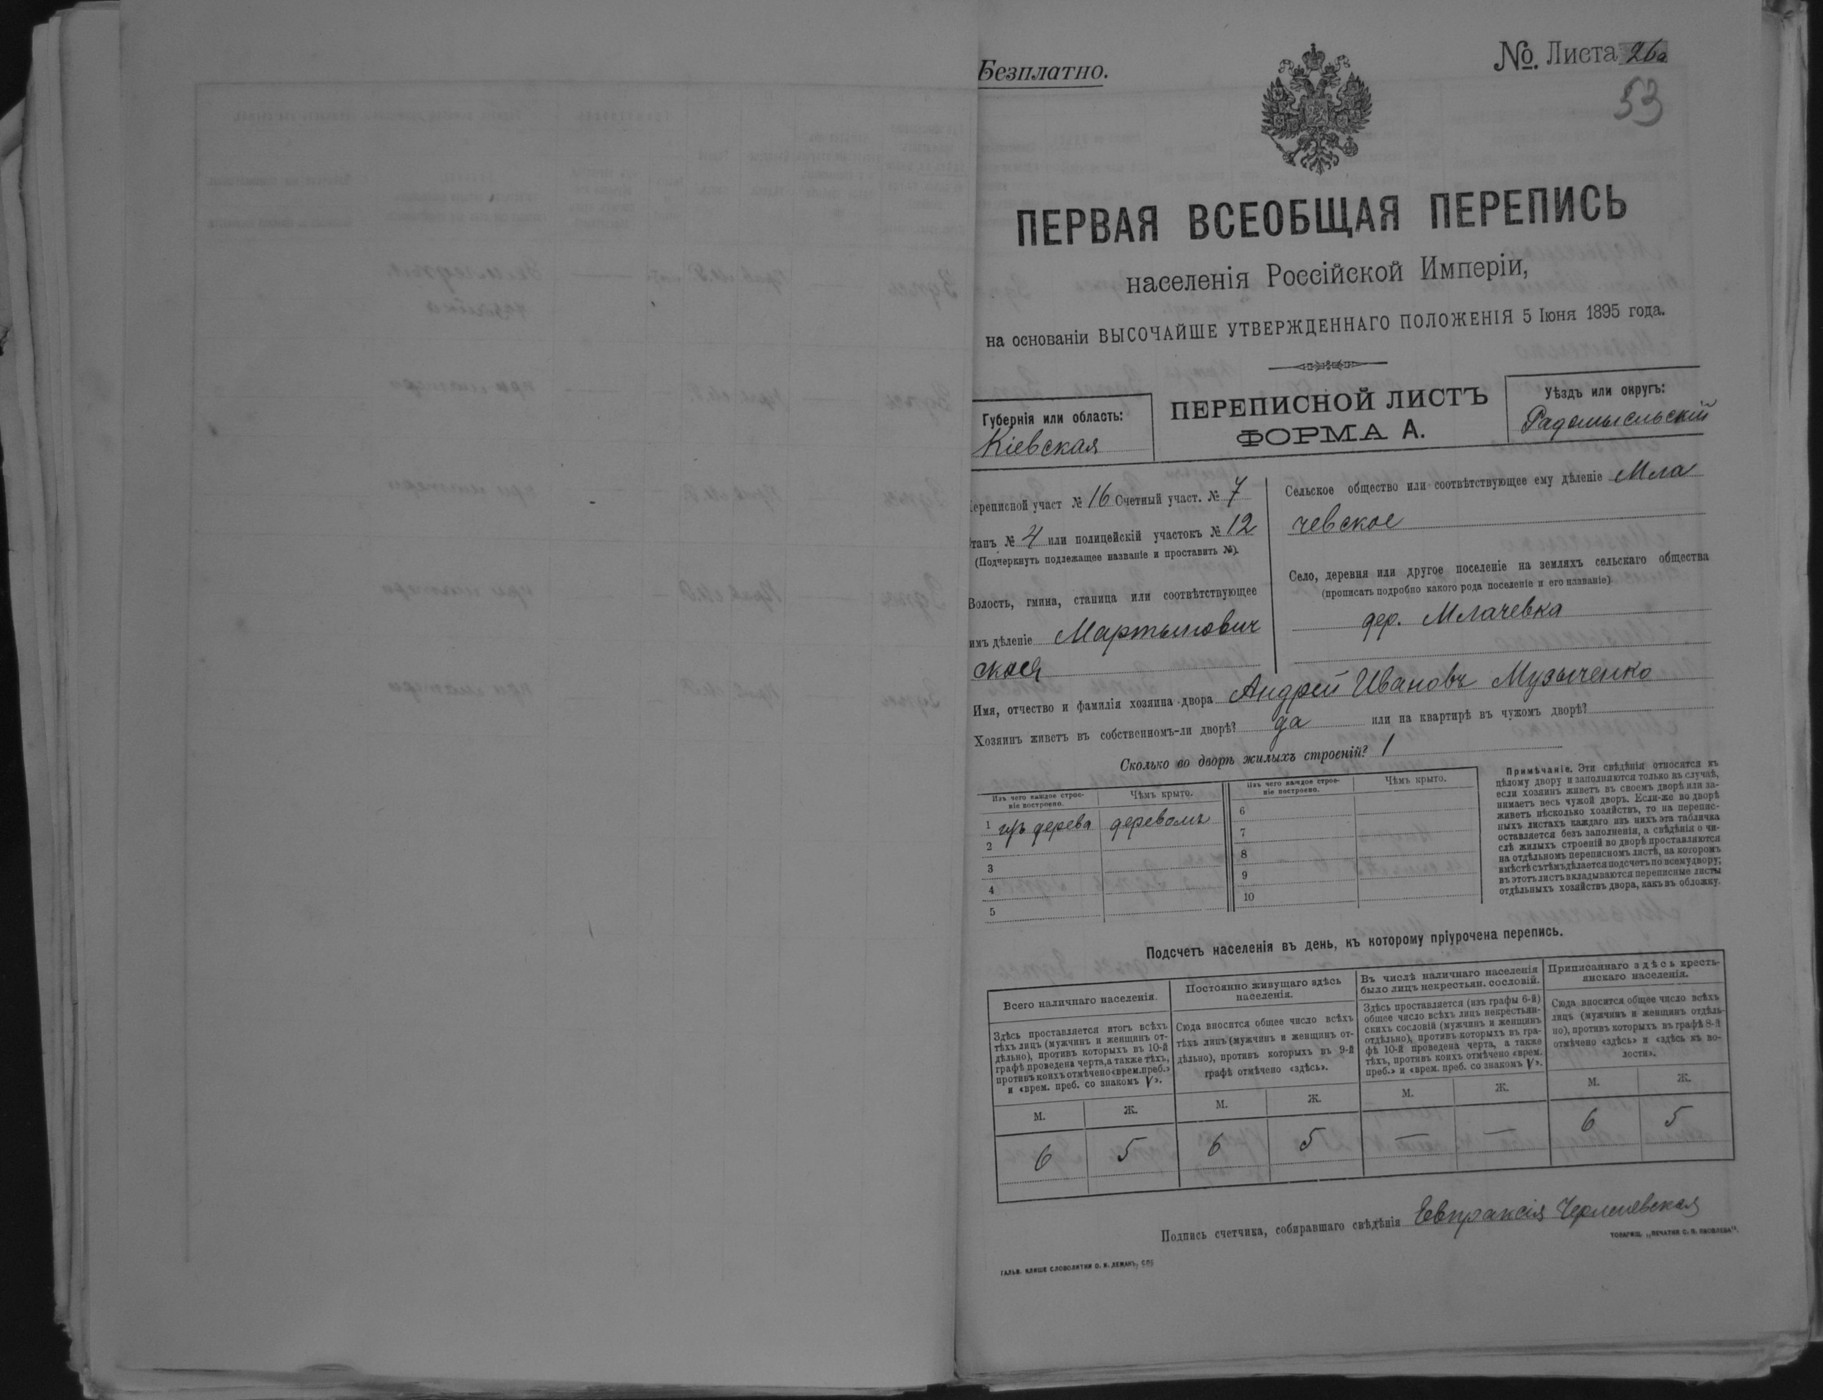 Безплатно.
№. Листа 26а
53
ПЕРВАЯ ВСЕОБЩАЯ ПЕРЕПИСЬ
населенія Россійской Имперіи,
на основаніи ВЫСОЧАЙШЕ УТВЕРЖДЕННАГО ПОЛОЖЕНІЯ 5 Іюня 1895 года.
Губернія или область:
Кіевская
ПЕРЕПИСНОЙ ЛИСТЪ
ФОРМА А.
Уѣздъ или округъ:
Радомысльскій
ереписной участ № 16 Счетный участ. № 7
танъ № 4 или полицейскій участокъ № 12
(Подчеркнуть подлежащее названіе и проставить №).
Волость, гмина, станица или соотвѣтствующее
имъ дѣленіе Мартынович
ская
Сельское общество или соотвѣтствующее ему дѣленіе Мла
чевское
Село, деревня или другое поселеніе на земляхъ сельскаго общества
(прописать подробно какого рода поселеніе и его названіе)
дер. Млачевка
Имя, отчество и фамилія хозяина двора Андрей Ивановъ Музыченко
Хозяинъ живетъ въ собственномъ-ли дворѣ? да или на квартирѣ въ чужомъ дворѣ?
Сколько во дворѣ жилыхъ строеній? 1
Изъ чего каждое строе-
ніе построено.
Чѣмъ крыто.
1 изъ дерева деревомъ
2
3
4
5
Изъ чего каждое строе-
ніе построено.
Чѣмъ крыто.
6
7
8
9
10
Примѣчаніе. Эти свѣдѣнія относятся къ
цѣлому двору и заполняются только въ случаѣ,
если хозяинъ живетъ въ своемъ дворѣ или за-
нимаетъ весь чужой дворъ. Если-же во дворѣ
живетъ нѣсколько хозяйствъ, то на перепис-
ныхъ листахъ каждаго изъ нихъ эта табличка
оставляется безъ заполненія, а свѣдѣнія о чи-
слѣ жилыхъ строеній во дворѣ проставляются
на отдѣльномъ переписномъ листѣ, на которомъ
вмѣстѣ съ тѣмъ дѣлается подсчетъ по всему двору;
въ этотъ листъ вкладываются переписные листы
отдѣльныхъ хозяйствъ двора, какъ въ обложку.
Подсчетъ населенія въ день, къ которому пріурочена перепись.
Всего наличнаго населенія.
Здѣсь проставляется итогъ всѣхъ
тѣхъ лицъ (мужчинъ и женщинъ от-
дѣльно), противъ которыхъ въ 10-й
графѣ проведена черта, а также тѣхъ,
противъ коихъ отмѣчено «врем. преб.»
и «врем. преб. со знакомъ V».
М. Ж.
6 5
Постоянно живущаго здѣсь
населенія.
Сюда вносится общее число всѣхъ
тѣхъ лицъ (мужчинъ и женщинъ от-
дѣльно), противъ которыхъ въ 9-й
графѣ отмѣчено «здѣсь».
М. Ж.
6 5
Въ числѣ наличнаго населенія
было лицъ некрестьян. сословій.
Здѣсь проставляется (изъ графы 6-й)
общее число всѣхъ лицъ некрестьян-
скихъ сословій (мужчинъ и женщинъ
отдѣльно), противъ которыхъ въ гра-
фѣ 10-й проведена черта, а также
тѣхъ, противъ коихъ отмѣчено «врем.
преб.» и «врем. преб. со знакомъ V».
М. Ж.
— —
Приписаннаго здѣсь кресть-
янскаго населенія.
Сюда вносится общее число всѣхъ
лицъ (мужчинъ и женщинъ отдѣль-
но), противъ которыхъ въ графѣ 8-й
отмѣчено «здѣсь» и «здѣсь въ во-
лости».
М. Ж.
6 5
Подпись счетчика, собиравшаго свѣдѣнія Евпраксія
ГАЛЬВ. КЛИШЕ СЛОВОЛИТНИ О. И. ЛЕМАНЪ, СПБ
ТОВАРИЩ. „ПЕЧАТНЯ С. П. ЯКОВЛЕВА".